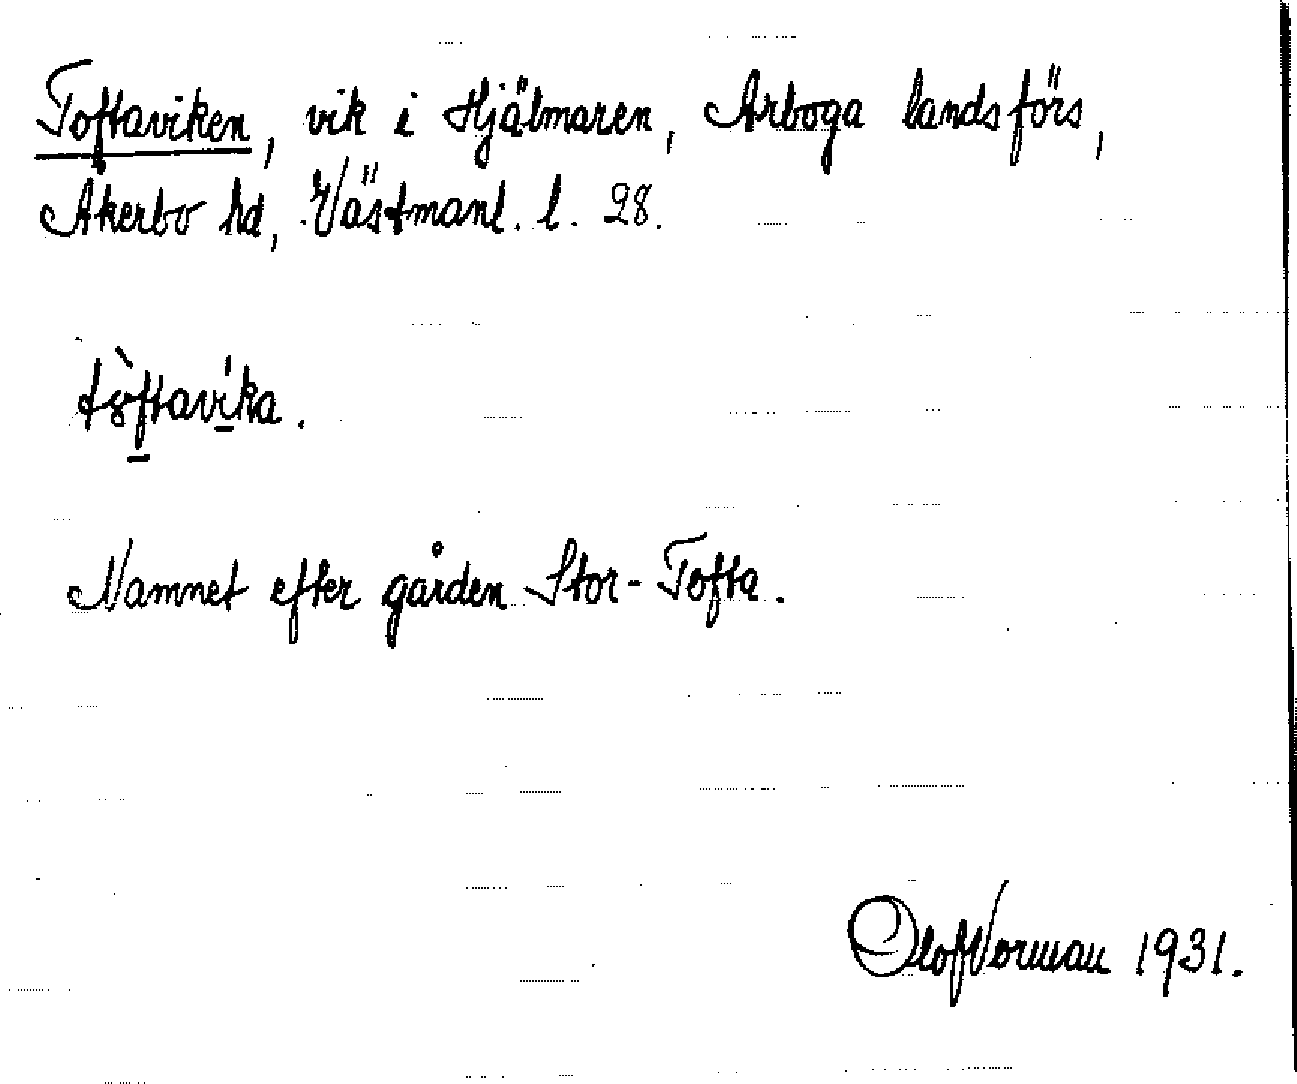 Toftaviken, vik i Hjälmaren, Arboga landsförs,
Åkerbo hd, Västmanl. l. 28.
tòftavíka.
Namnet efter gården Stor-Tofta.
Olof Norman 1931.